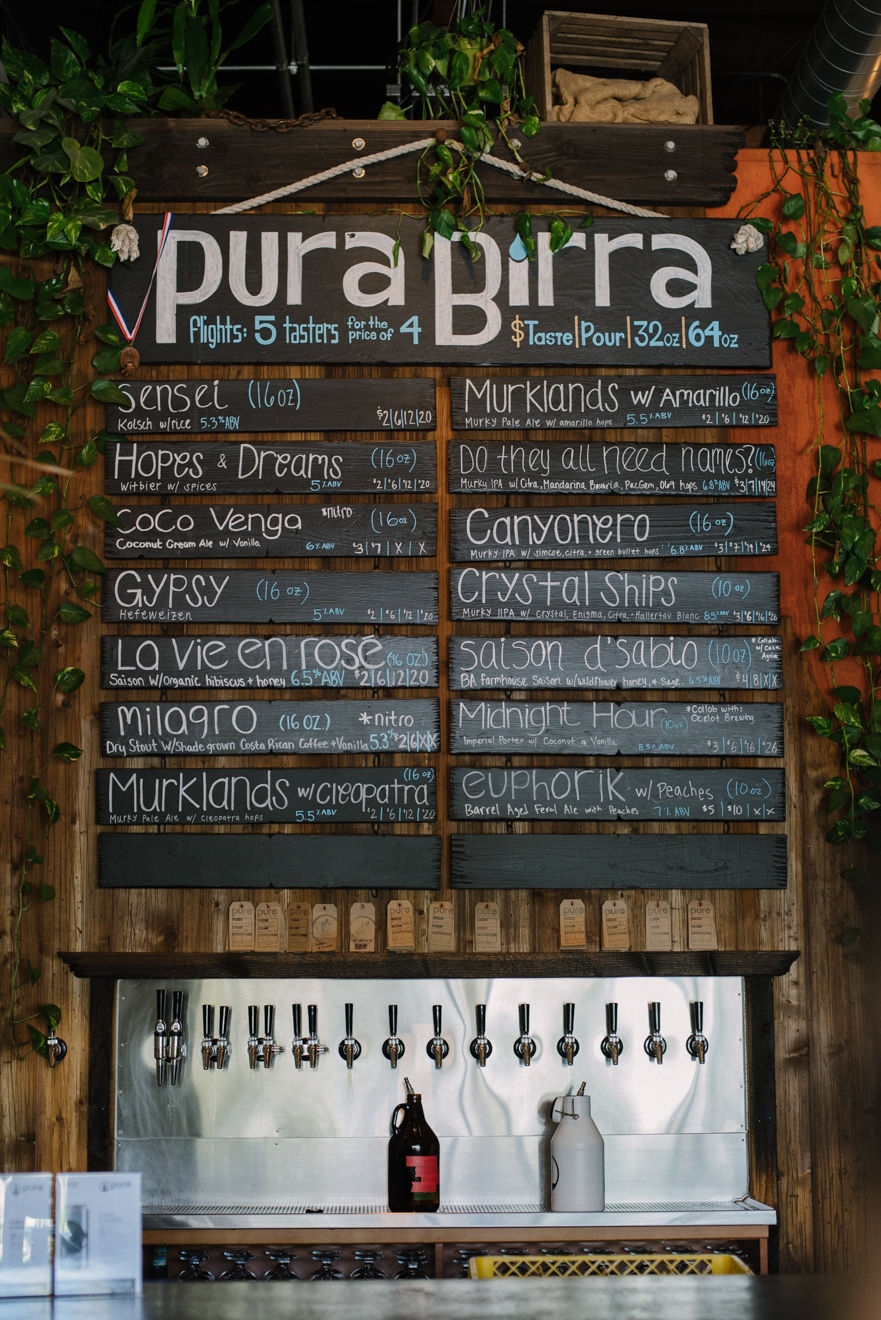 pura Birra
flights: 5 tasters for the price of 4
$Taste|Pour|32oz|64oz
Sensei (16oz)
Kolsch w/rice 5.3% ABV $2|6|12|20
Hopes & Dreams (16oz)
Witbier w/ spices 5% ABV $2|6|12|20
Coco Venga *nitro (16oz)
Coconut Cream Ale w/ Vanilla 6% ABV 3|7|X|X
Gypsy (16 oz)
Hefeweizen 5% ABV 2|6|12|20
La vie en rosé (16 oz)
Saison w/organic hibiscus + honey 6.5% ABV $2|6|12|20
Milagro (16 oz) *nitro
Dry Stout w/Shade grown Costa Rican Coffee + Vanilla 5.3% $2|6|X|X
Murklands w/cleopatra (16 oz)
Murky Pale Ale w/ cleopatra hops 5.5% ABV 2|6|12|20
Murklands w/ Amarillo (16 oz)
Murky Pale Ale w/ amarillo hops 5.5% ABV $2|6|12|20
Do they all need names? (16oz)
Murky IPA w/ Citra, Mandarina Bavaria, PacGem, 067 hops 6.8% ABV $3|7|14|24
Canyonero (16 oz)
Murky IPA w/ simcoe, citra, + green bullet hops 6.8% ABV $3|7|14|24
Crystal Ships (10 oz)
Murky IIPA w/ Crystal, Enigma, Citra, + Hallertau Blanc 8.5% ABV $3|6|16|26
saison d'sabio (10oz) *Collab w/
BA Farmhouse Saison w/wildflower honey, & Sage 6.5% ABV $4|8|X|X
Midnight Hour (10oz) *Collab with Ocelot Brewing
Imperial Porter w/ Coconut & Vanilla 8.5% ABV $3|6|16|26
euphorik w/ Peaches (10oz)
Barrel Aged Feral Ale with Peaches 7% ABV $5|$10|X|X
pura
pura
pura
pura
pura
pura
pura
pura
pura